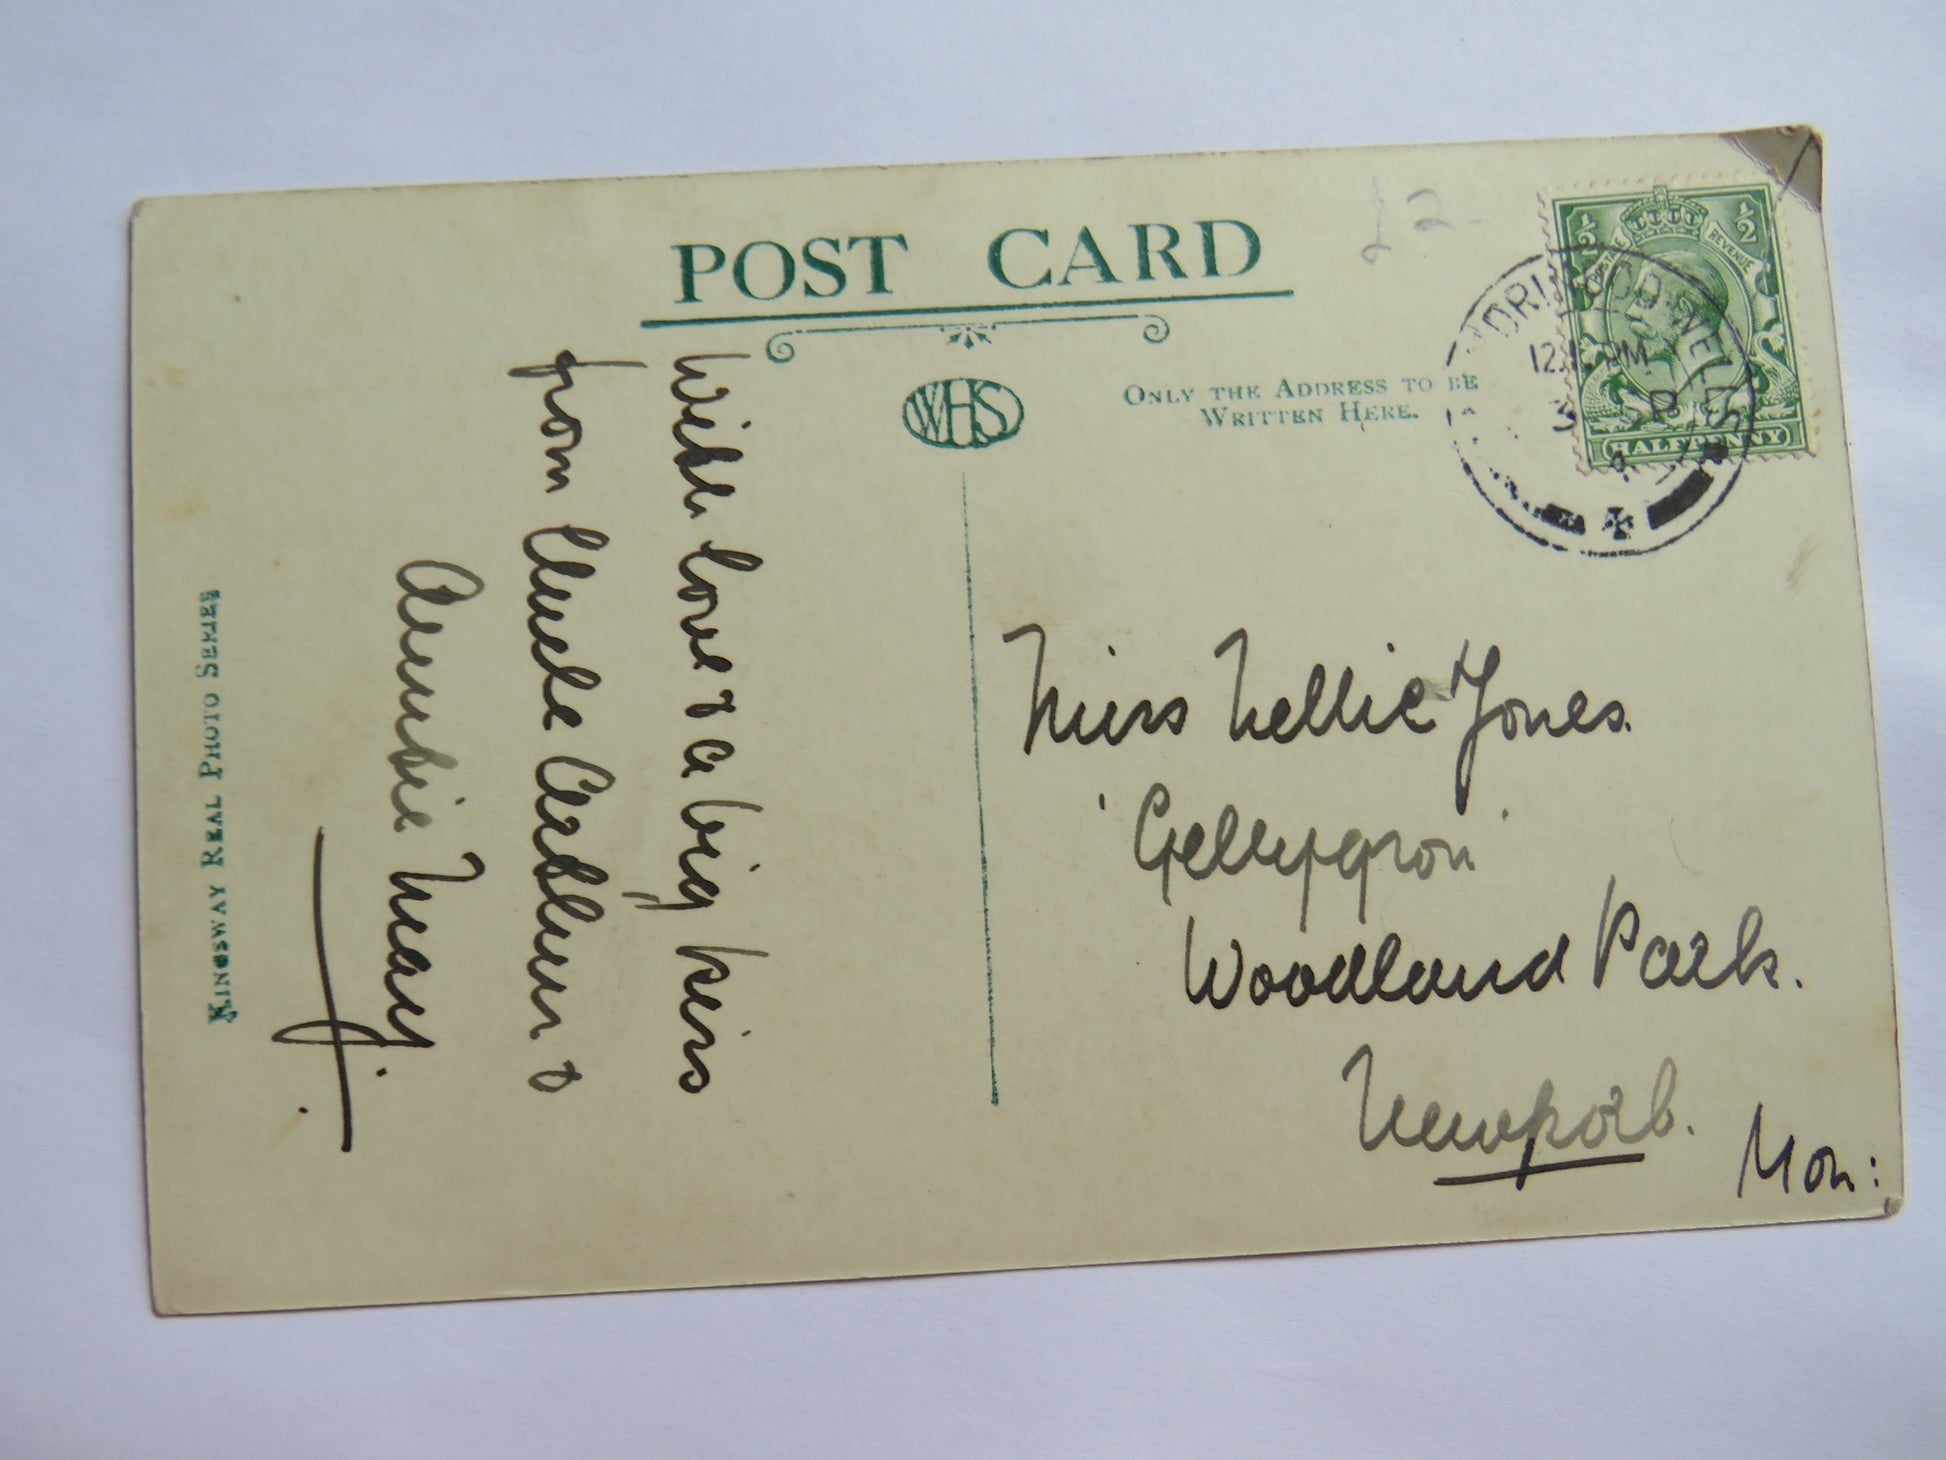 POST CARD
£2
WHS
ONLY THE ADDRESS TO BE
WRITTEN HERE.
½ ½
POSTAGE REVENUE
HALFPENNY
WELLS
12.1 PM
SP
With love & a big kiss
from Uncle Arthur &
Auntie May.
Miss Nellie Jones.
'Gellygron'
Woodland Park.
Newport.
Mon:
KINGSWAY REAL PHOTO SERIES